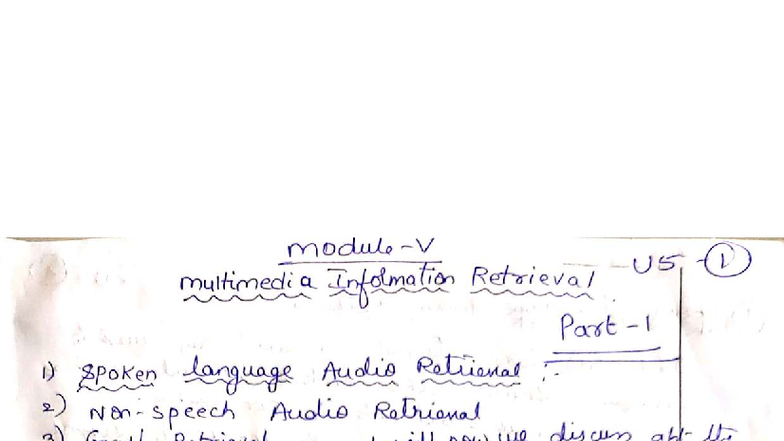 Module-V
Multimedia Infolmation Retrieval - U5 - 1
Part-1
1) Spoken language Audio Retrieval :-
2) Non-speech Audio Retrieval
3) Retrieval now we discuss abt the